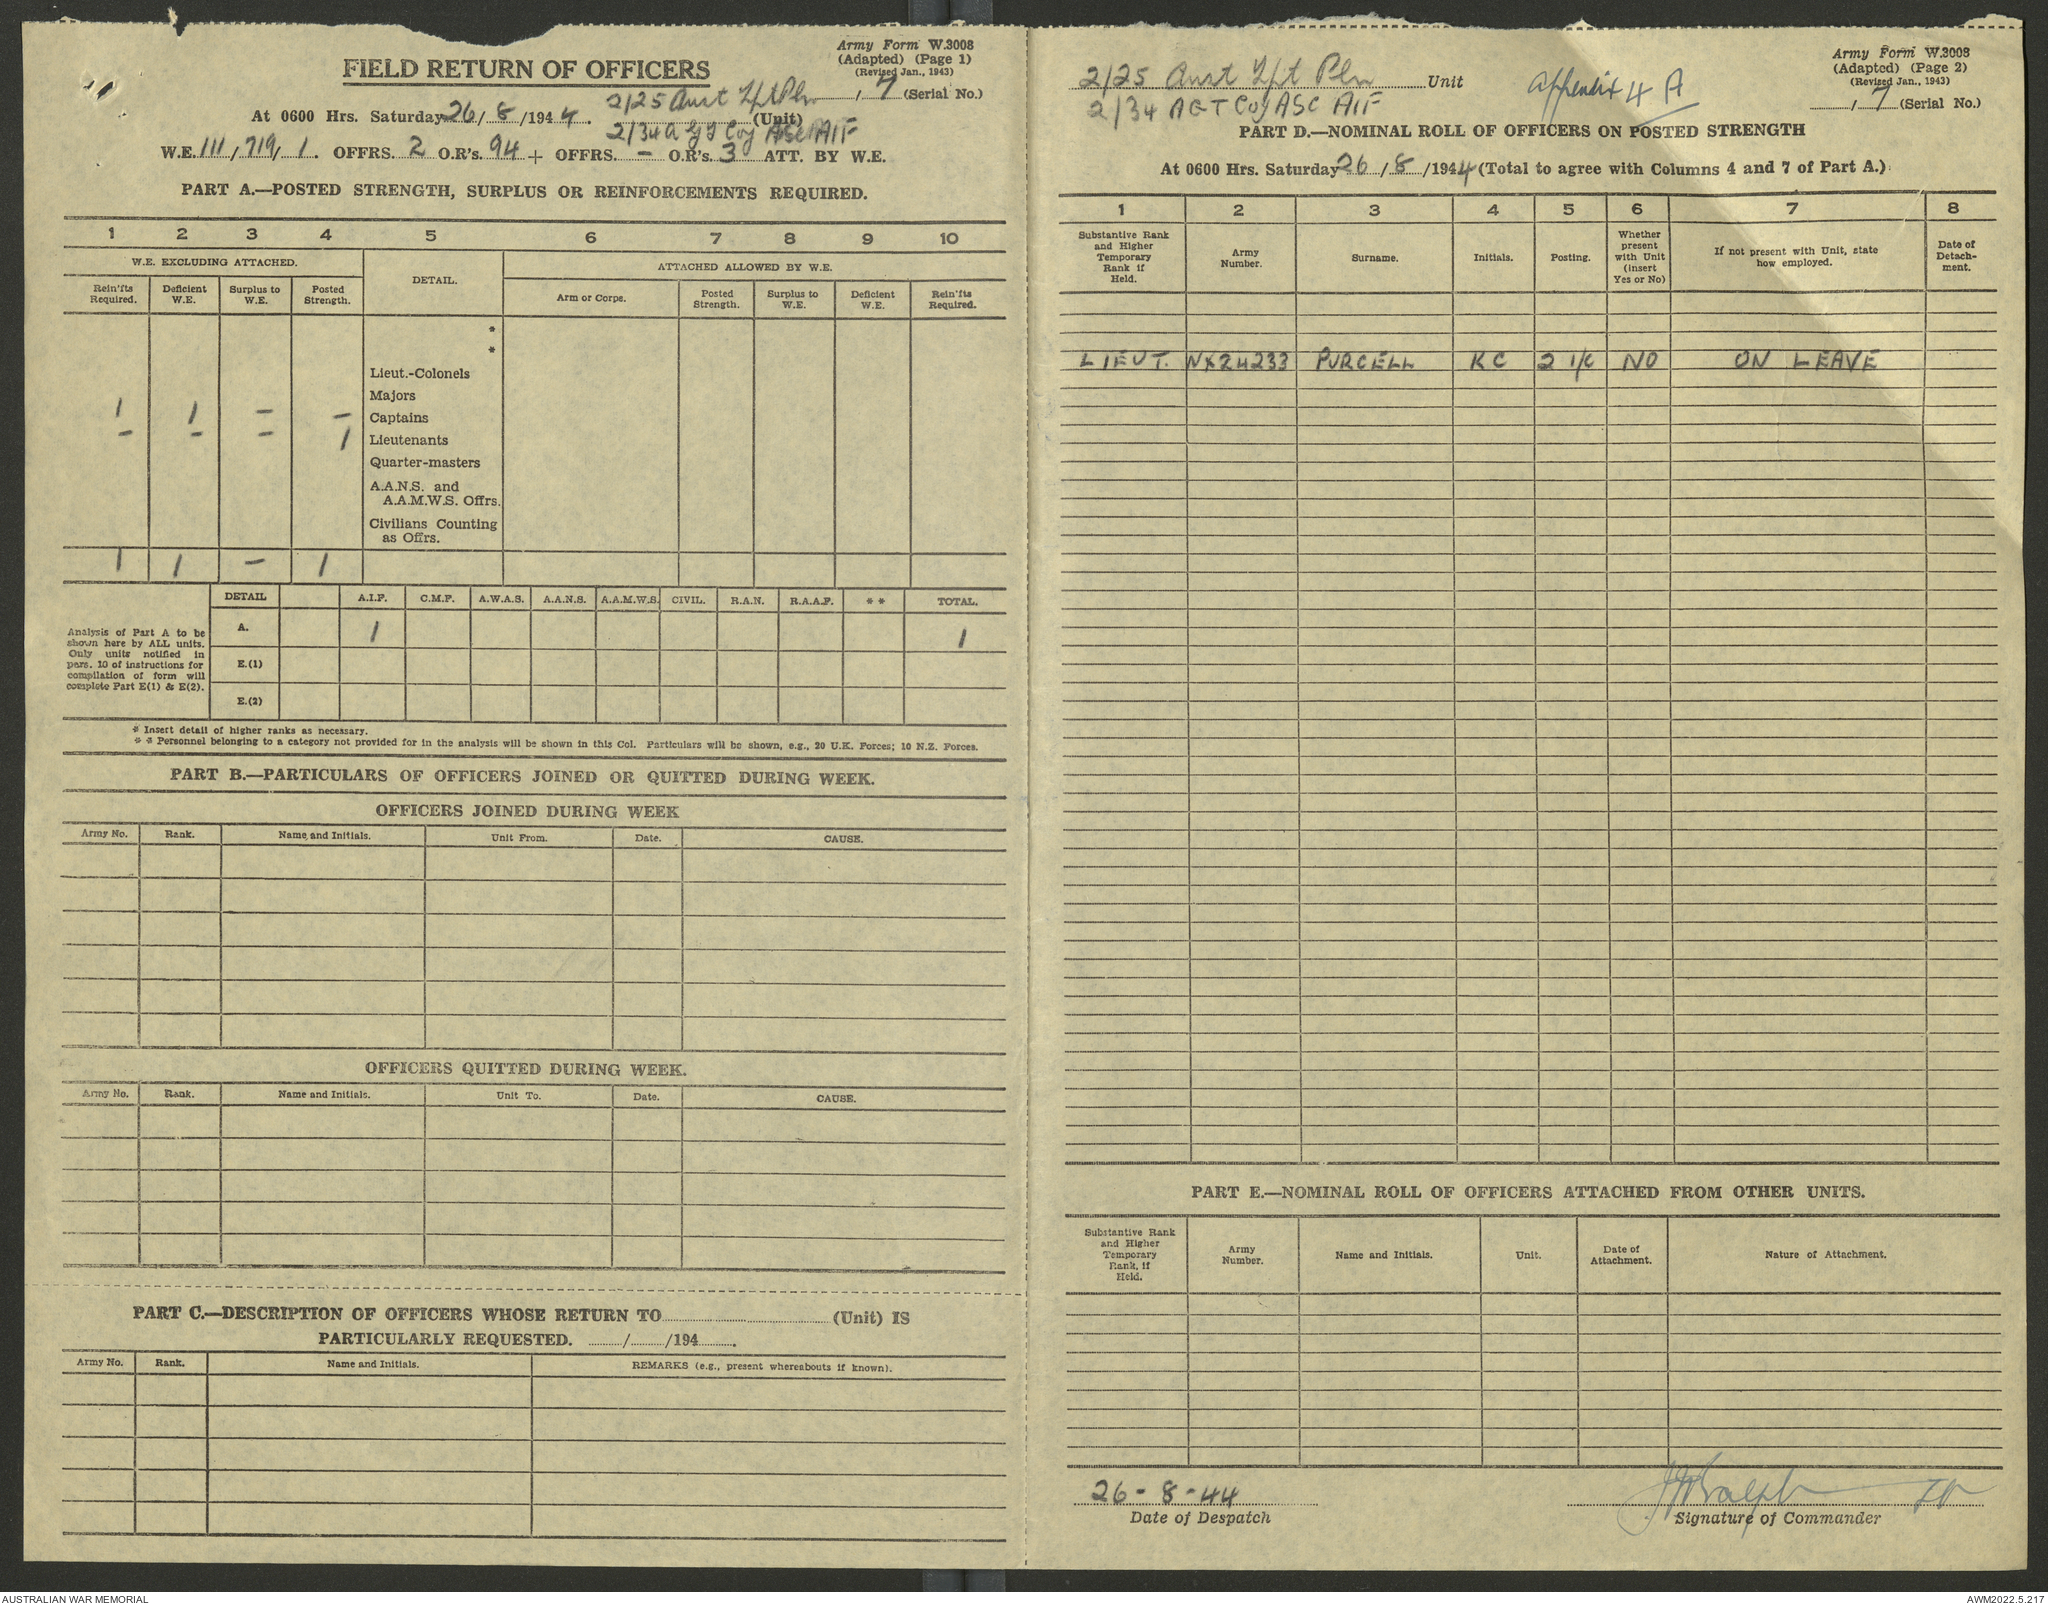 Army Form W.3008
(Adapted) (Page 1)
(Revised Jan., 1943)
FIELD RETURN OF OFFICERS
2/25 Aust Tpt Pln , 7 (Serial No.)
At 0600 Hrs. Saturday 26/8/1944. (Unit)
2/34 A G T Coy ASC AIF
W.E. 111/719/1. OFFRS. 2 O.R's. 94 + OFFRS. – O.R's. 3 ATT. BY W.E.
PART A.—POSTED STRENGTH, SURPLUS OR REINFORCEMENTS REQUIRED.
1 2 3 4 5 6 7 8 9 10
W.E. EXCLUDING ATTACHED. DETAIL. ATTACHED ALLOWED BY W.E.
Rein'fts Required. Deficient W.E. Surplus to W.E. Posted Strength. Arm or Corps. Posted Strength. Surplus to W.E. Deficient W.E. Rein'fts Required.
*
*
Lieut.-Colonels
Majors
1 1 – – Captains
– – – 1 Lieutenants
Quarter-masters
A.A.N.S. and
A.A.M.W.S. Offrs.
Civilians Counting
as Offrs.
1 1 – 1
DETAIL A.I.F. C.M.F. A.W.A.S. A.A.N.S. A.A.M.W.S. CIVIL. R.A.N. R.A.A.F. * * TOTAL.
Analysis of Part A to be
shown here by ALL units.
Only units notified in
para. 10 of instructions for
compilation of form will
complete Part E(1) & E(2).
A. 1 1
E.(1)
E.(2)
* Insert detail of higher ranks as necessary.
* * Personnel belonging to a category not provided for in the analysis will be shown in this Col. Particulars will be shown, e.g., 20 U.K. Forces; 10 N.Z. Forces.
PART B.—PARTICULARS OF OFFICERS JOINED OR QUITTED DURING WEEK.
OFFICERS JOINED DURING WEEK
Army No. Rank. Name and Initials. Unit From. Date. CAUSE.
OFFICERS QUITTED DURING WEEK.
Army No. Rank. Name and Initials. Unit To. Date. CAUSE.
PART C.—DESCRIPTION OF OFFICERS WHOSE RETURN TO (Unit) IS
PARTICULARLY REQUESTED. / /194 .
Army No. Rank. Name and Initials. REMARKS (e.g., present whereabouts if known).
Army Form W.3008
(Adapted) (Page 2)
(Revised Jan., 1943)
2/25 Aust Tpt Pln Unit Appendix 4 A
, 7 (Serial No.)
2/34 AGT Coy ASC AIF
PART D.—NOMINAL ROLL OF OFFICERS ON POSTED STRENGTH
At 0600 Hrs. Saturday 26/8/1944 (Total to agree with Columns 4 and 7 of Part A.)
1 2 3 4 5 6 7 8
Substantive Rank and Higher Temporary Rank if Held. Army Number. Surname. Initials. Posting. Whether present with Unit (insert Yes or No) If not present with Unit, state how employed. Date of Detachment.
LIEUT. NX24233 PURCELL KC 2 I/C NO ON LEAVE
PART E.—NOMINAL ROLL OF OFFICERS ATTACHED FROM OTHER UNITS.
Substantive Rank and Higher Temporary Rank, if Held. Army Number. Name and Initials. Unit. Date of Attachment. Nature of Attachment.
26-8-44
Date of Despatch Signature of Commander
AUSTRALIAN WAR MEMORIAL AWM2022.5.217